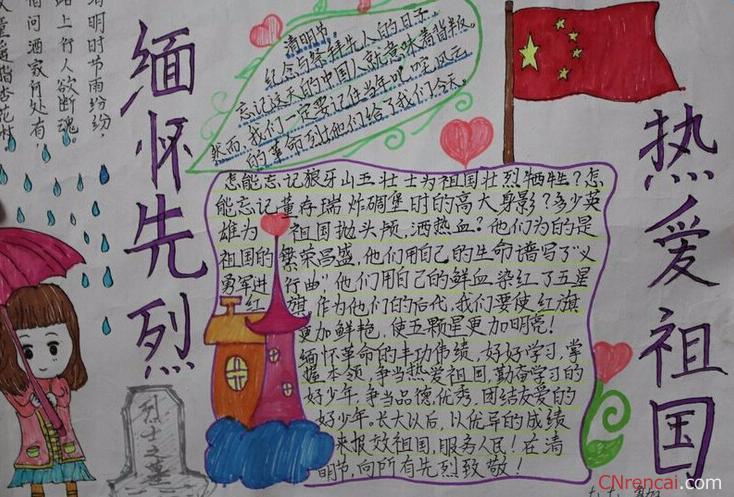 清明时节雨纷纷，
路上行人欲断魂。
借问酒家何处有，
童遥指杏花村
缅怀先烈
清明节。
纪念与祭拜先人的日子
忘记这天的中国人就意味着背叛。
然而，我们一定要记住当年叱咤风云
的革命烈士他们给了我们今天。
怎能忘记狼牙山五壮士为祖国壮烈牺牲？怎
能忘记董存瑞炸碉堡时的高大身影？多少英
雄为祖国抛头颅，洒热血？他们为的是
祖国的繁荣昌盛，他们用自己的生命谱写了“义
勇军进行曲”他们用自己的鲜血染红了五星
红旗作为他们的后代，我们要使红旗
更加鲜艳，使五颗星更加明亮！
缅怀革命的丰功伟绩，好好学习，掌
握本领，争当热爱祖国，勤奋学习的
好少年，争当品德优秀，团结友爱的
好少年。长大以后，以优异的成绩
来报效祖国，服务人民！在清
明节，向所有先烈致敬！
热爱祖国
烈士之墓
CNrencai.com